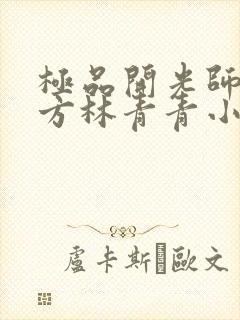 極品開光師
方林青青小
盧卡斯·歐文